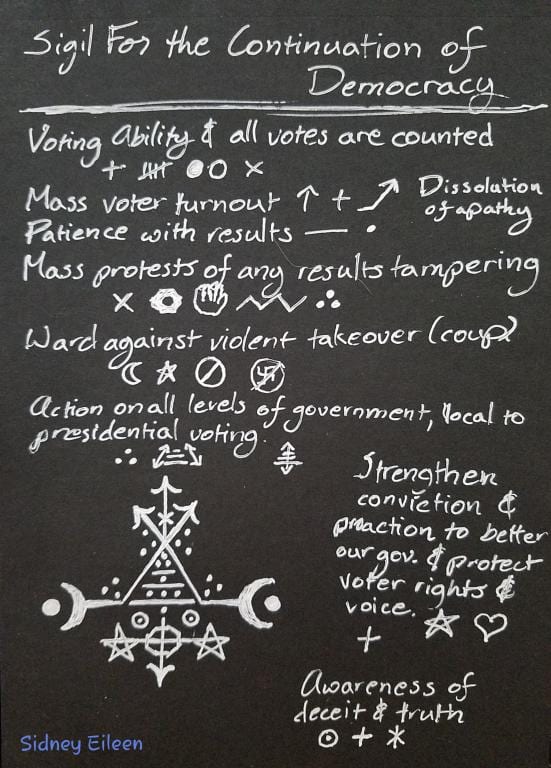 Sigil For the Continuation of
Democracy
Voting Ability & all votes are counted
Mass voter turnout
Dissolution
of apathy
Patience with results
Mass protests of any results tampering
Ward against violent takeover (coup)
Action on all levels of government, local to
presidential voting.
Strengthen
conviction &
proaction to better
our gov. & protect
voter rights &
voice.
Awareness of
deceit & truth
Sidney Eileen